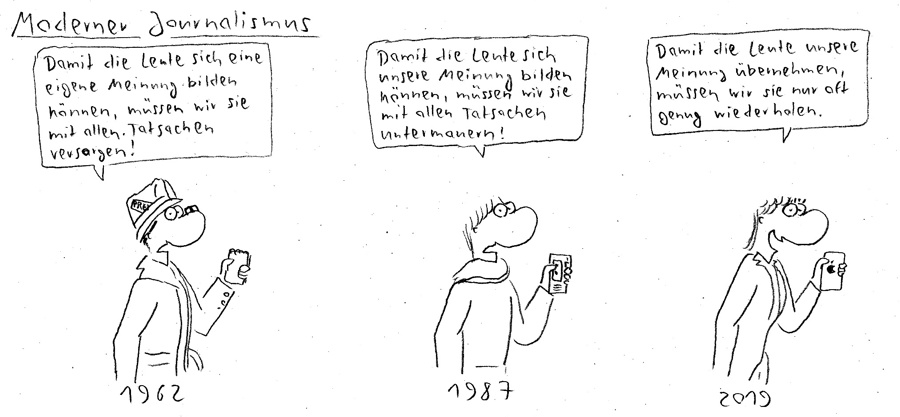 Moderner Journalismus
Damit die Leute sich eine
eigene Meinung bilden
können, müssen wir sie
mit allen Tatsachen
versorgen!
Damit die Leute sich
unsere Meinung bilden
können, müssen wir sie
mit allen Tatsachen
untermauern!
Damit die Leute unsere
Meinung übernehmen,
müssen wir sie nur oft
genug wiederholen.
1962
1987
2019